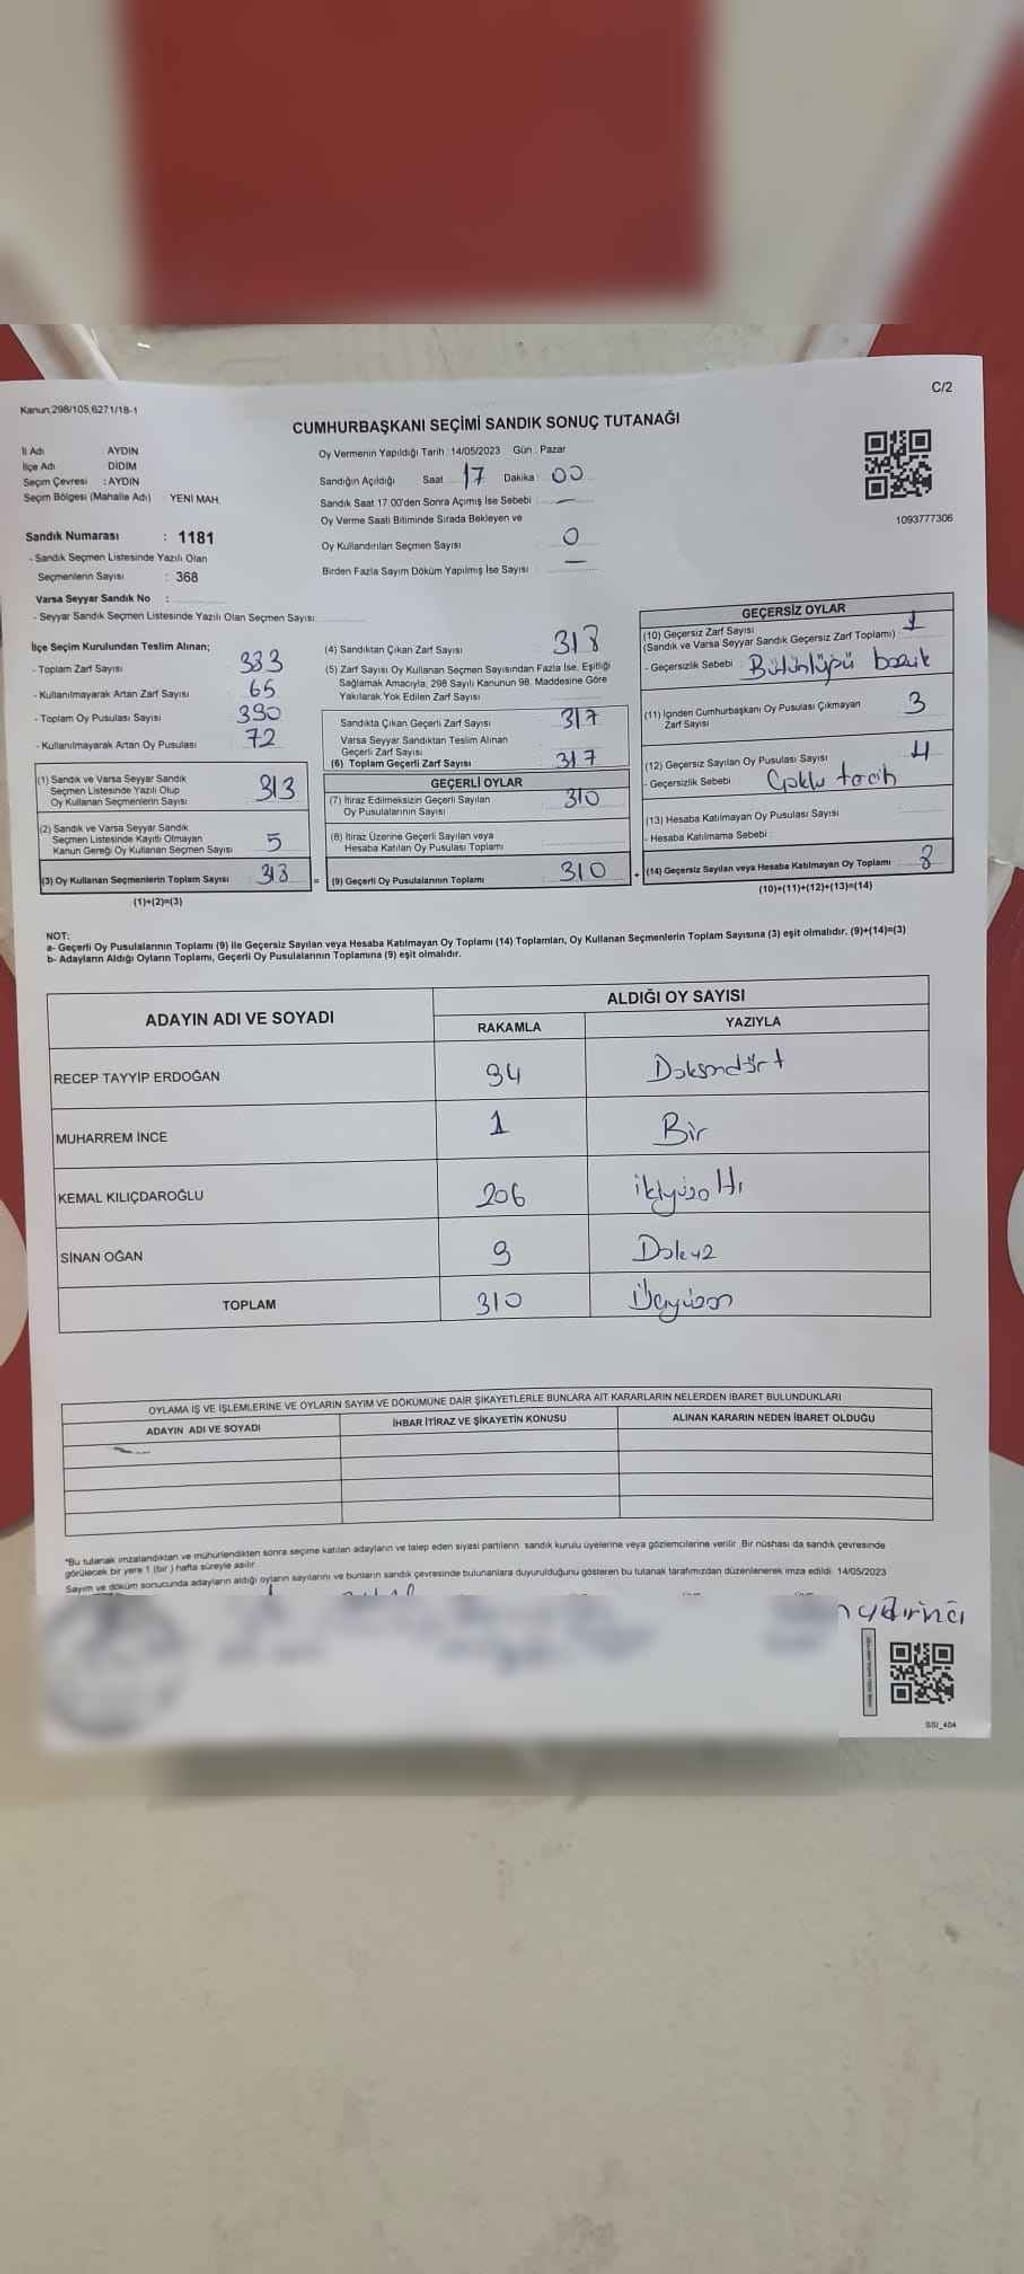 Kanun;298/105,6271/18-1
C/2
CUMHURBAŞKANI SEÇİMİ SANDIK SONUÇ TUTANAĞI
İl Adı : AYDIN
İlçe Adı : DİDİM
Seçim Çevresi : AYDIN
Seçim Bölgesi (Mahalle Adı) : YENİ MAH.
Sandık Numarası : 1181
- Sandık Seçmen Listesinde Yazılı Olan
Seçmenlerin Sayısı : 368
Varsa Seyyar Sandık No :
- Seyyar Sandık Seçmen Listesinde Yazılı Olan Seçmen Sayısı
Oy Vermenin Yapıldığı Tarih : 14/05/2023 Gün : Pazar
Sandığın Açıldığı Saat 17 Dakika : 00
Sandık Saat 17.00'den Sonra Açımış İse Sebebi —
Oy Verme Saati Bitiminde Sırada Bekleyen ve
Oy Kullandırılan Seçmen Sayısı 0
Birden Fazla Sayım Döküm Yapılmış İse Sayısı —
1093777306
İlçe Seçim Kurulundan Teslim Alınan;
- Toplam Zarf Sayısı 383
- Kullanılmayarak Artan Zarf Sayısı 65
- Toplam Oy Pusulası Sayısı 390
- Kullanılmayarak Artan Oy Pusulası 72
(1) Sandık ve Varsa Seyyar Sandık
Seçmen Listesinde Yazılı Olup
Oy Kullanan Seçmenlerin Sayısı 313
(2) Sandık ve Varsa Seyyar Sandık
Seçmen Listesinde Kayıtlı Olmayan
Kanun Gereği Oy Kullanan Seçmen Sayısı 5
(3) Oy Kullanan Seçmenlerin Toplam Sayısı 318 =
(1)+(2)=(3)
(4) Sandıktan Çıkan Zarf Sayısı 318
(5) Zarf Sayısı Oy Kullanan Seçmen Sayısından Fazla İse, Eşitliği
Sağlamak Amacıyla, 298 Sayılı Kanunun 98. Maddesine Göre
Yakılarak Yok Edilen Zarf Sayısı
Sandıkta Çıkan Geçerli Zarf Sayısı 317
Varsa Seyyar Sandıktan Teslim Alınan
Geçerli Zarf Sayısı
(6) Toplam Geçerli Zarf Sayısı 317
GEÇERLİ OYLAR
(7) İtiraz Edilmeksizin Geçerli Sayılan
Oy Pusulalarının Sayısı 310
(8) İtiraz Üzerine Geçerli Sayılan veya
Hesaba Katılan Oy Pusulası Toplamı
(9) Geçerli Oy Pusulalarının Toplamı 310 +
GEÇERSİZ OYLAR
(10) Geçersiz Zarf Sayısı
(Sandık ve Varsa Seyyar Sandık Geçersiz Zarf Toplamı) 1
- Geçersizlik Sebebi Bütünlüğü bozuk
(11) İçinden Cumhurbaşkanı Oy Pusulası Çıkmayan
Zarf Sayısı 3
(12) Geçersiz Sayılan Oy Pusulası Sayısı 4
- Geçersizlik Sebebi Çoklu tercih
(13) Hesaba Katılmayan Oy Pusulası Sayısı
- Hesaba Katılmama Sebebi :
(14) Geçersiz Sayılan veya Hesaba Katılmayan Oy Toplamı 8
(10)+(11)+(12)+(13)=(14)
NOT:
a- Geçerli Oy Pusulalarının Toplamı (9) ile Geçersiz Sayılan veya Hesaba Katılmayan Oy Toplamı (14) Toplamları, Oy Kullanan Seçmenlerin Toplam Sayısına (3) eşit olmalıdır. (9)+(14)=(3)
b- Adayların Aldığı Oyların Toplamı, Geçerli Oy Pusulalarının Toplamına (9) eşit olmalıdır.
ADAYIN ADI VE SOYADI
ALDIĞI OY SAYISI
RAKAMLA YAZIYLA
RECEP TAYYİP ERDOĞAN 94 Doksandört
MUHARREM İNCE 1 Bir
KEMAL KILIÇDAROĞLU 206 ikiyüzaltı
SİNAN OĞAN 9 Dokuz
TOPLAM 310 Üçyüzon
OYLAMA İŞ VE İŞLEMLERİNE VE OYLARIN SAYIM VE DÖKÜMÜNE DAİR ŞİKAYETLERLE BUNLARA AİT KARARLARIN NELERDEN İBARET BULUNDUKLARI
ADAYIN ADI VE SOYADI İHBAR İTİRAZ VE ŞİKAYETİN KONUSU ALINAN KARARIN NEDEN İBARET OLDUĞU
"Bu tutanak imzalandıktan ve mühürlendikten sonra seçime katılan adayların ve talep eden siyasi partilerin sandık kurulu üyelerine veya gözlemcilerine verilir. Bir nüshası da sandık çevresinde
görülecek bir yere 1 (bir ) hafta süreyle asılır.
Sayım ve döküm sonucunda adayların aldığı oyların sayılarını ve bunların sandık çevresinde bulunanlara duyurulduğunu gösteren bu tutanak tarafımızdan düzenlenerek imza edildi. 14/05/2023
SSI_404